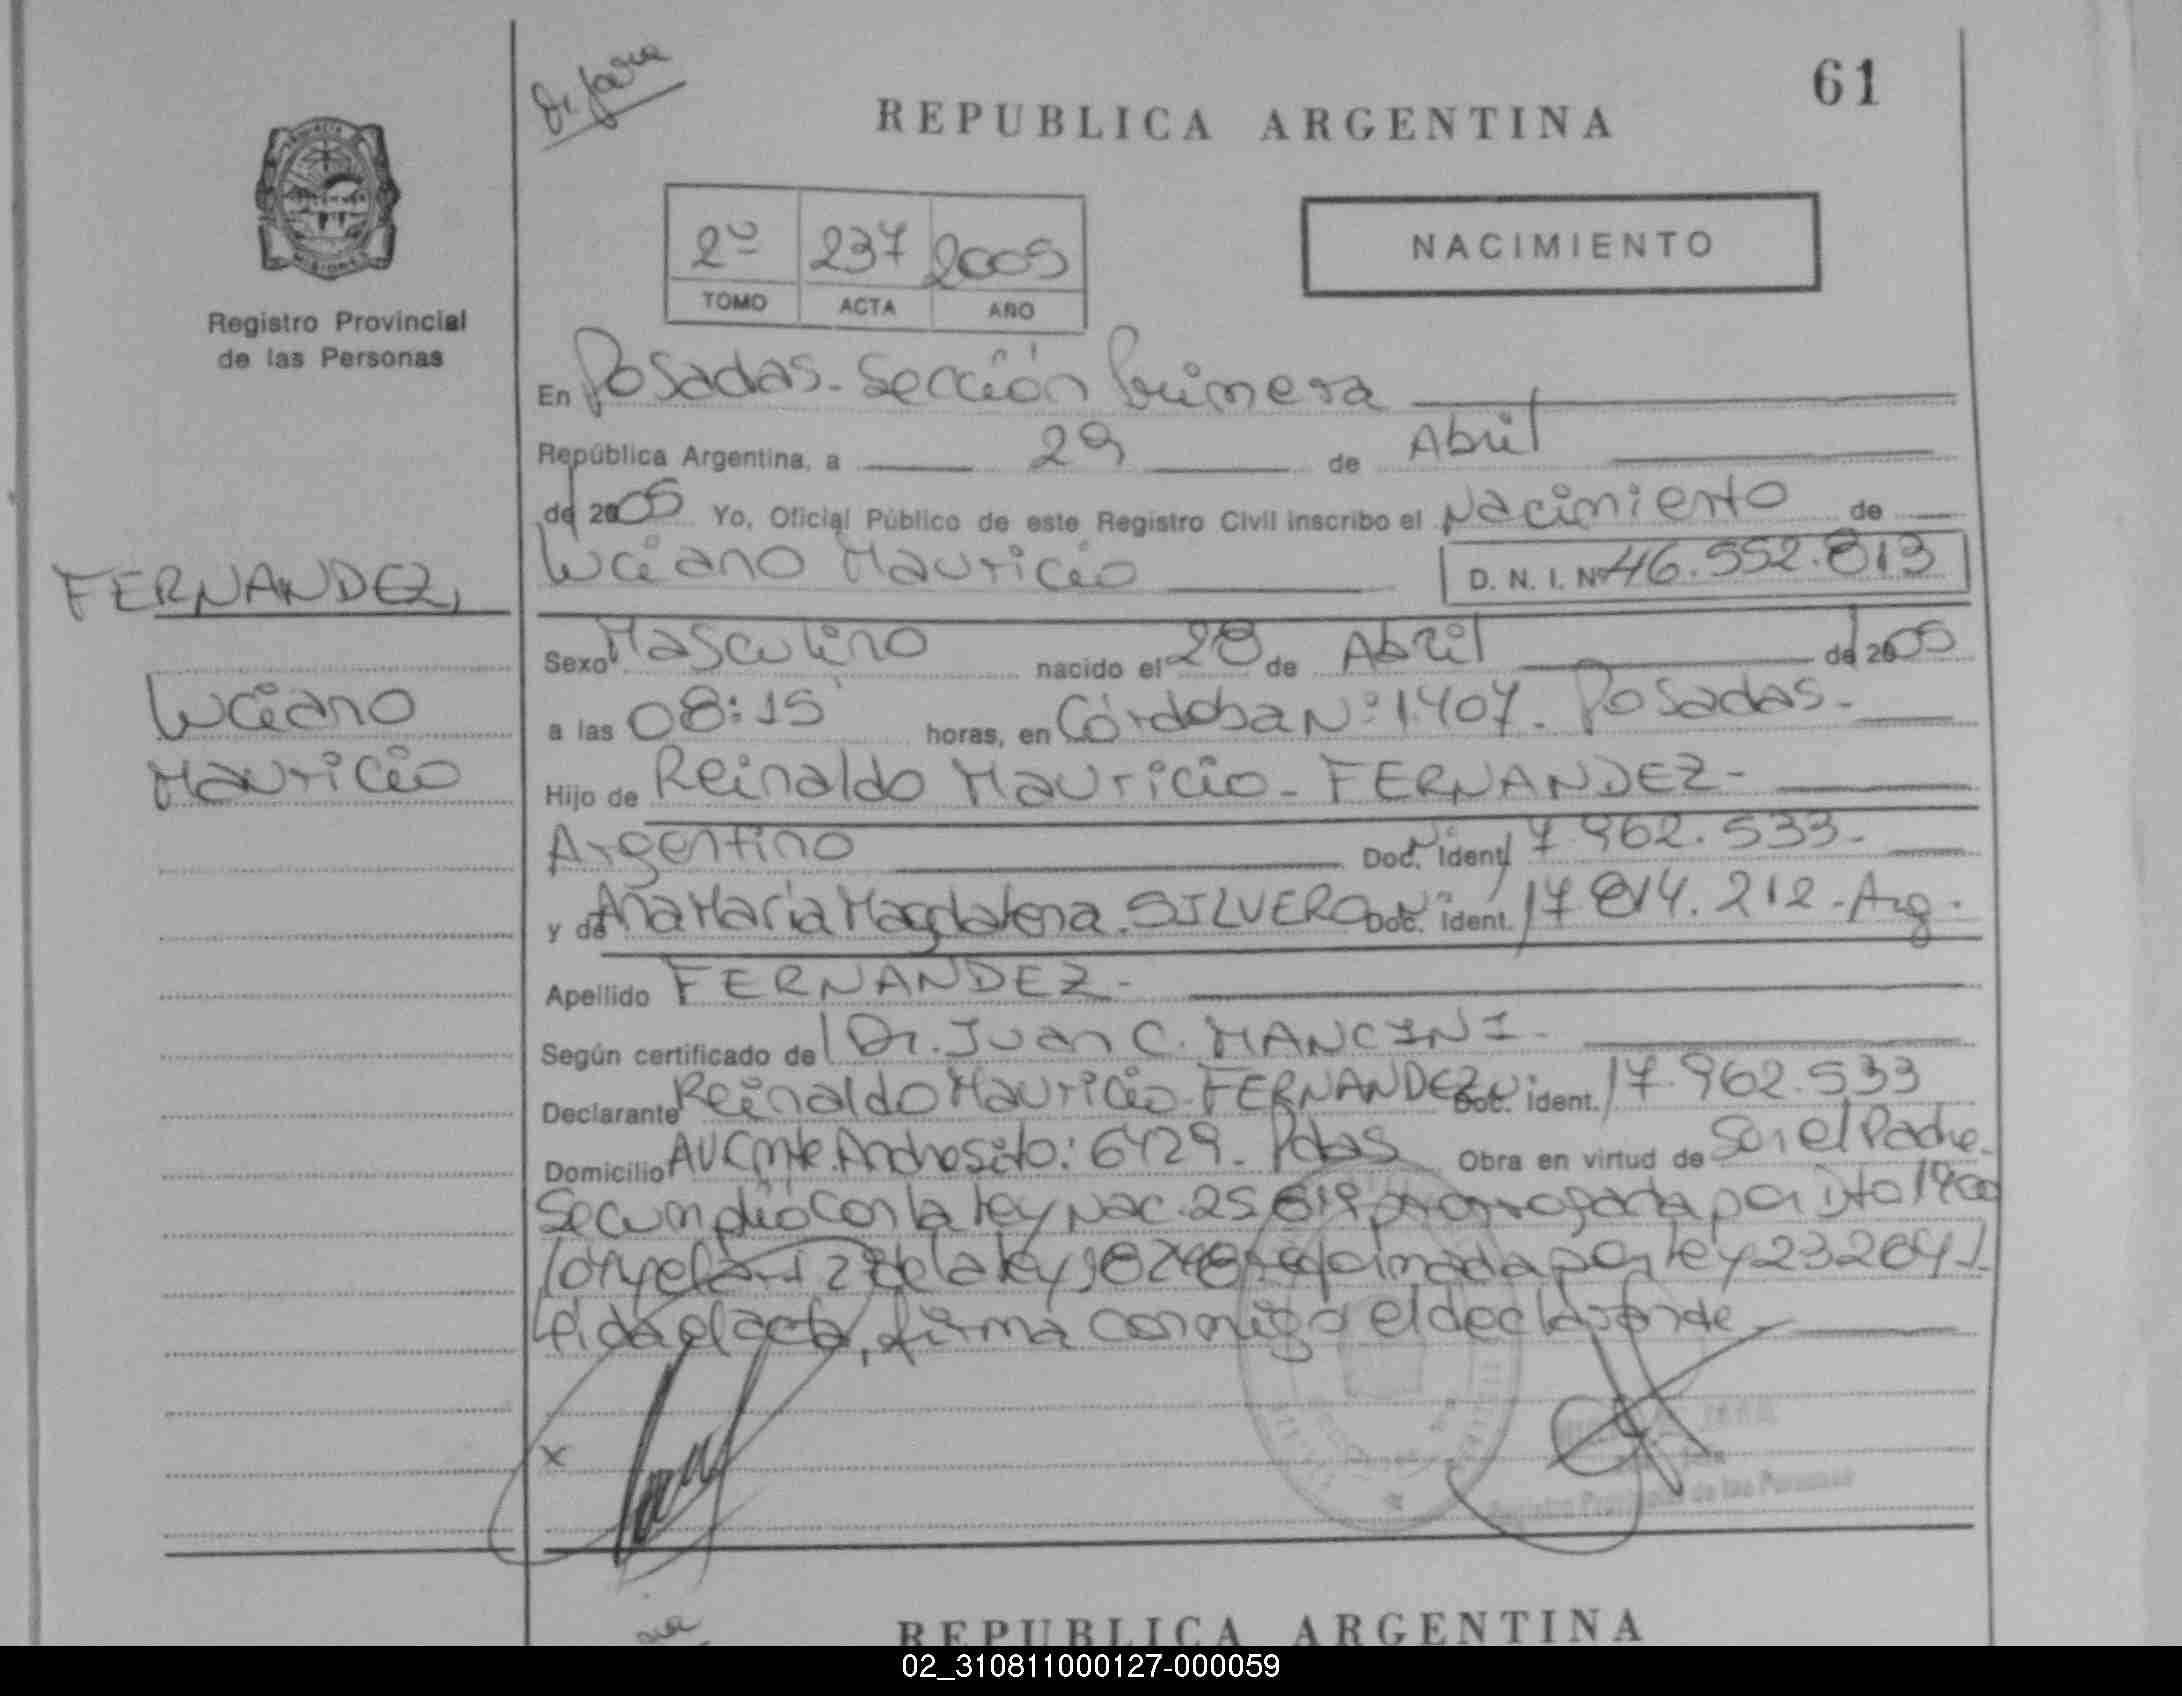 61
REPUBLICA ARGENTINA
2º 237 2005
TOMO ACTA AÑO
NACIMIENTO
Registro Provincial
de las Personas
En Posadas - Sección Primera
República Argentina, a 29 de Abril
de 2005 Yo, Oficial Público de este Registro Civil inscribo el Nacimiento de
FERNANDEZ,
Luciano Mauricio D. N. I. Nº 46.552.813
Sexo Masculino nacido el 28 de Abril de 2005
Luciano
a las 08:15 horas, en Córdoba Nº 1407 - Posadas -
Mauricio
Hijo de Reinaldo Mauricio - FERNANDEZ -
Argentino Doc. ident. 17.962.533 -
y de Ana María Magdalena. SILVERO Doc. ident. 17.814.212 - Arg.
Apellido FERNANDEZ -
Según certificado de Dr. Juan C. MANCINI -
Declarante Reinaldo Mauricio - FERNANDEZ Doc. ident. 17.962.533
Domicilio Av Cmte. Andresito: 6429 - Pdas Obra en virtud de Ser el Padre -
Se cumplió con la Ley Nac. 25.819 prorrogada por Dto
y el art 28 de la ley 18248 por ley 23264
Leída el acta, firma conmigo el declarante
x
Registro Provincial de las Personas
REPUBLICA ARGENTINA
02_310811000127-000059